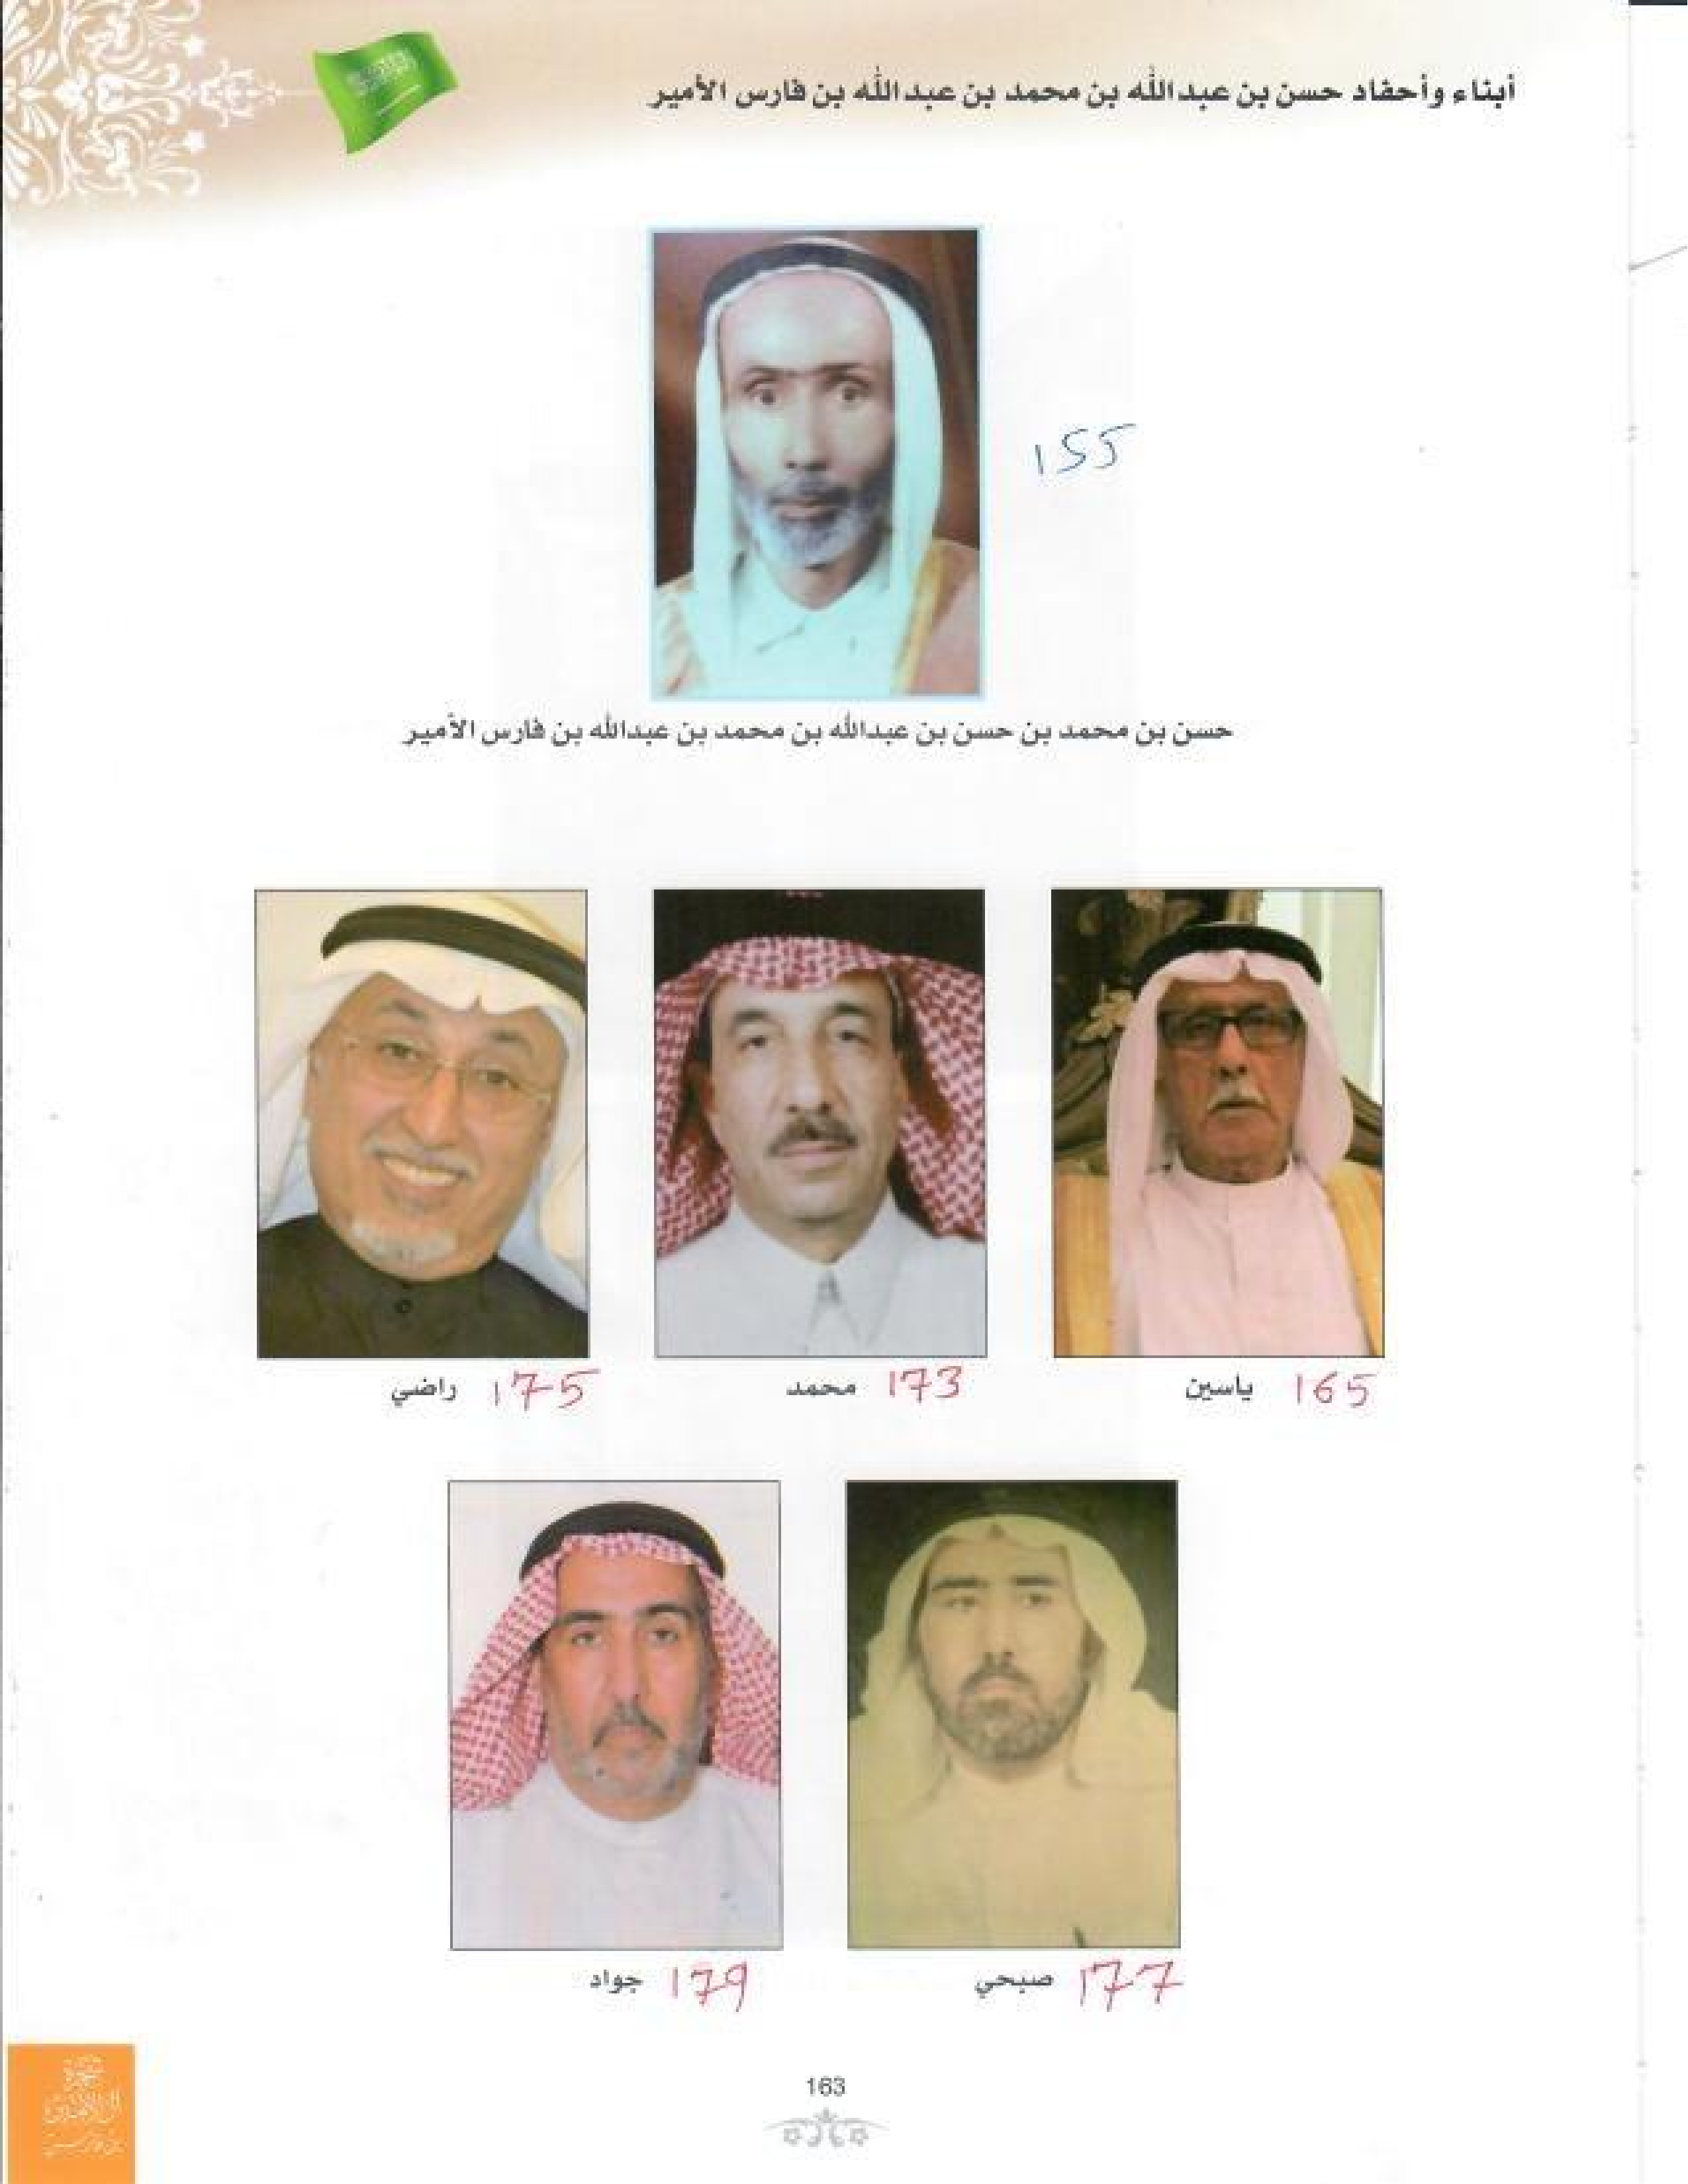 أبناء وأحفاد حسن بن عبدالله بن محمد بن عبدالله بن فارس الأمير
155
حسن بن محمد بن حسن بن عبدالله بن محمد بن عبدالله بن فارس الأمير
165 ياسين
173 محمد
175 راضي
177 صبحي
179 جواد
163
شجرة